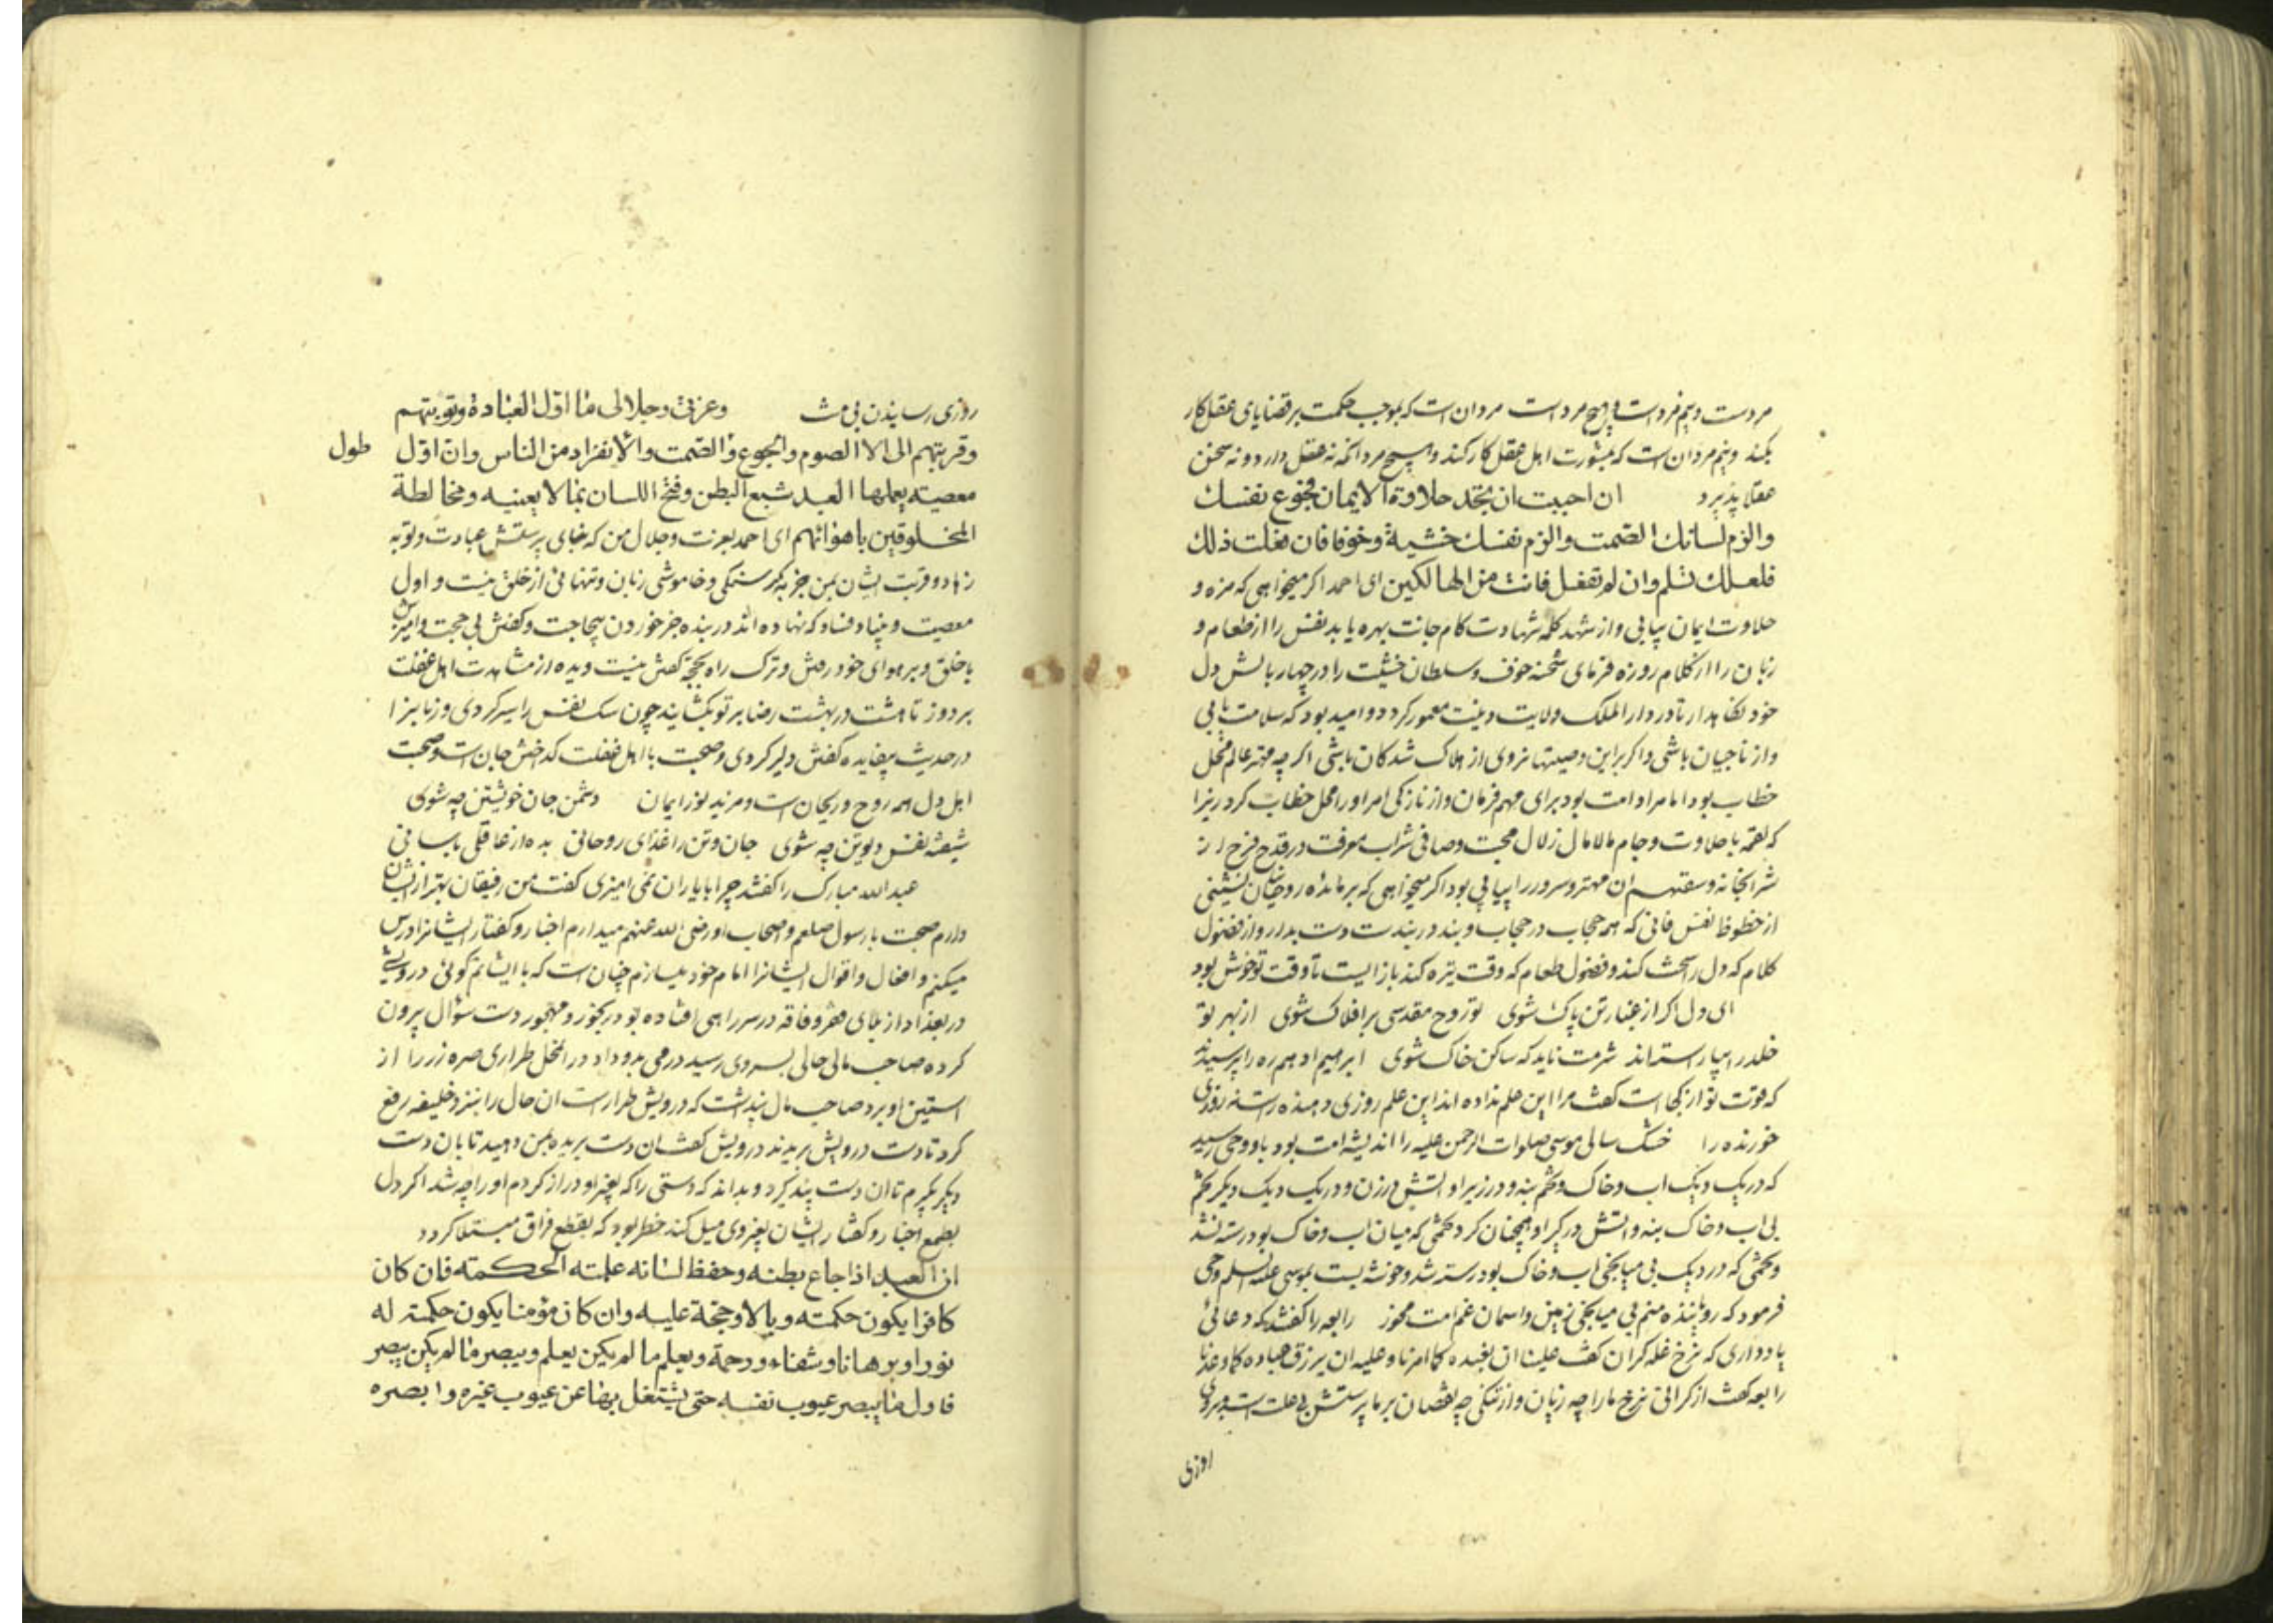 مردست و نیم مردست و هیچ مرد است مرد ان است که بموجب حکمت بر قضایای عقل کار
بکند و نیم مرد ان است که بمشورت اهل عقل کار کند و هیچ مرد انکه نه عقل دارد و نه سخن
عقلا پذیرد ان احببت ان تجد حلاوة الایمان فجوع نفسك
والزم لسانك الصمت والزم نفسك خشیة وخوفا فان فعلت ذلك
فلعلك تسلم وان لم تفعل فانت من الهالکین ای احمد اکر میخواهی که مزه و
حلاوت ایمان بیابی و از شهد کلمه شهادت کام جانت بهره یابد نفس را از طعام و
زبان را از کلام روزه فرمای شحنه خوف و سلطان خشیت را در چهار بالش دل
خود نکاهدار تا در دار الملک ولایت دینت معمور کردد و امید بود که سلامت یابی
و از ناجیان باشی و اکر براین وصیتها نروی از هلاک شدکان باشی اکرچه مهتر عالم محل
خطاب بود اما مراد امت بود برای مهم فرمان و از نازکی امر او را محل خطاب کرد زیرا
که لقمه با حلاوت و جام مالامال زلال محبت و صافی شراب معرفت در قدح فرح از
شرابخانه وسقیهم ان مهتر و سرور را پیاپی بود اکر میخواهی که بر مائده روحانیان نشینی
از حظوظ نفس فانی که همه حجاب در حجاب و بند در بندست دست بدار و از فضول
کلام که دل را سخت کند و فضول طعام که وقت تیره کند باز ایست تا وقت تو خوش بود
ای دل اکر از غبار تن پاک شوی تو روح مقدسی بر افلاک شوی از بهر تو
خلد را بیاراسته اند شرمت ناید که ساکن خاک شوی ابرهیم ادهم ره را پرسیدند
که قوت تو از کجا است کفت مرا این علم نداده اند این علم روزی دهنده راست نه روزی
خورنده را خشک سالی موسی صلوات الرحمن علیه را اندیشه امت بود باو وحی رسید
که در یک دیک اب و خاک و تخم بنه و در زیر او اتش در زن و در یک دیک دیکر تخم
بی اب و خاک بنه و اتش در کیر او همچنان کرد تخمی که میان اب و خاک بود رسته نشد
و تخمی که در دیک بی میانجی اب و خاک بود رسته شد و خوشه بست بموسی علیه السلم وحی
فرمود که رویاننده منم بی میانجی زمین و اسمان غم امت مخور رابعه را کفتند که دعائی
یاد داری که نرخ غله کران کفت علینا ان نعبده کما امرنا وعلیه ان یرزق عباده کما وعدنا
رابعه کفت از کرانی نرخ ما را چه زیان و از تنکی چه نقصان بر ما پرستش بی علت است و بر وی
روزی
روزی رسانیدن بی منت وعزتی وجلالی ما اول العبادة وتوبتهم
وقربتهم الی الا الصوم والجوع والصمت والانفراد من الناس وان اول طول
معصیته یعملها العبد شبع البطن وفتح اللسان بما لا یعنیه ومخالطة
المخلوقین باهوائهم ای احمد بعزت و جلال من که غبای پرستش عبادت و توبه
زهاد و قربت ایشان بمن جز به کرسنکی و خاموشی زبان و تنهائی از خلق نیست و اول
معصیت و بنیاد فساد که نهاده اند در بنده جز خوردن بیحاجت و کفتن بی حجت و امیزش
با خلق و بر هوای خود رفتن و ترک راه بحجة کفتن نیست و دیده از مشاهدت اهل غفلت
بر دوز تا هشت در بهشت رضا بر تو بکشایند چون سک نفس را سیر کردی و زبانرا
در حدیث بیفایده کفتن دلیر کردی و صحبت با اهل غفلت که اخش جان است و صحبت
اهل دل همه روح و ریحان است و مزید نور ایمان دشمن جان خویشتن چه شوی
شیفته نفس دیوتن چه شوی جان و تن را غذای روحانی بده از عاقلی باسانی
عبد الله مبارک را کفتند چرا با یاران نمی امیزی کفت من رفیقان بهتر از ایشان
دارم صحبت با رسول صلعم و اصحاب او رضی الله عنهم میدارم اخبار و کفتار ایشانرا درس
میکنم و افعال و اقوال ایشانرا امام خود میسازم چنان است که با ایشانم کوئی درویشی
در بغداد از بلای فقر و فاقه در سر راهی افتاده بود رنجور و مهجور دست سؤال بیرون
کرده صاحب مالی حالی بسر وی رسید درمی بدو داد در انحال طراری صره زر را از
استین او برد صاحب مال پنداشت که درویش طرار است ان حال را بنزد خلیفه رفع
کرد تا دست درویش بریدند درویش کفت ان دست بریده بمن دهید تا بان دست
دیکر بکیرم تا ان دست پند کیرد و بداند که دستی را که بغیر او دراز کردم او را چه شد اکر دل
بطمع اخبار و کفتار ایشان بغیر وی میل کند خطر بود که بقطع فراق مبتلا کردد
ان العبد اذا جاع بطنه وحفظ لسانه علمته الحکمته فان کان
کافرا یکون حکمته وبالا وحجة علیه وان کان مؤمنا یکون حکمته له
نورا وبرهانا وشفاء ورحمة ویعلم ما لم یکن یعلم ویبصر ما لم یکن یبصر
فاول ما یبصر عیوب نفسه حتی یشتغل بها عن عیوب غیره وابصره